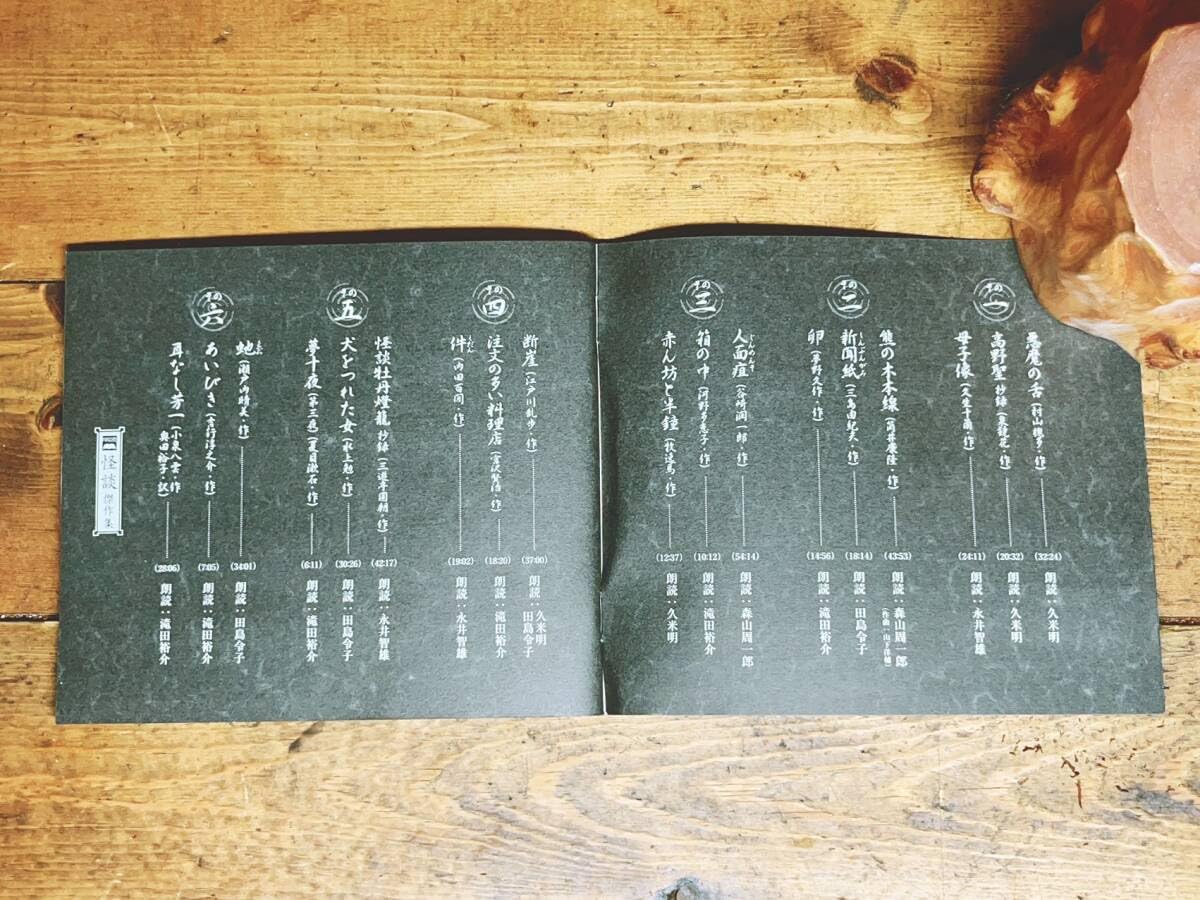 その一
悪魔の舌(村山槐多・作)(32:24)朗読:久米明
高野聖 抄録(泉鏡花・作)(20:32)朗読:久米明
母子像(久生十蘭・作)(24:11)朗読:永井智雄
その二
熊の木本線(筒井康隆・作)(43:53)朗読:森山周一郎
(作曲:山下洋輔)
新聞紙(三島由紀夫・作)(18:14)朗読:田島令子
しんぶんがみ
卵(夢野久作・作)(14:56)朗読:滝田裕介
その三
人面疽(谷崎潤一郎・作)(54:14)朗読:森山周一郎
じんめんそ
箱の中(河野多恵子・作)(10:12)朗読:滝田裕介
赤ん坊と半鐘(枝達馬・作)(12:37)朗読:久米明
その四
断崖(江戸川乱歩・作)(37:00)朗読:久米明 田島令子
注文の多い料理店(宮沢賢治・作)(18:20)朗読:滝田裕介
件(内田百閒・作)(19:02)朗読:永井智雄
くだん
その五
怪談牡丹燈籠 抄録(三遊亭円朝・作)(42:17)朗読:永井智雄
犬をつれた女(水上勉・作)(30:26)朗読:田島令子
夢十夜(第三夜)(夏目漱石・作)(6:11)朗読:永井智雄
その六
蛇(瀬戸内晴美・作)(34:01)朗読:田島令子
あいびき(吉行淳之介・作)(7:05)朗読:滝田裕介
耳なし芳一(小泉八雲・作
奥田裕子・訳)(28:06)朗読:滝田裕介
怪談 傑作集